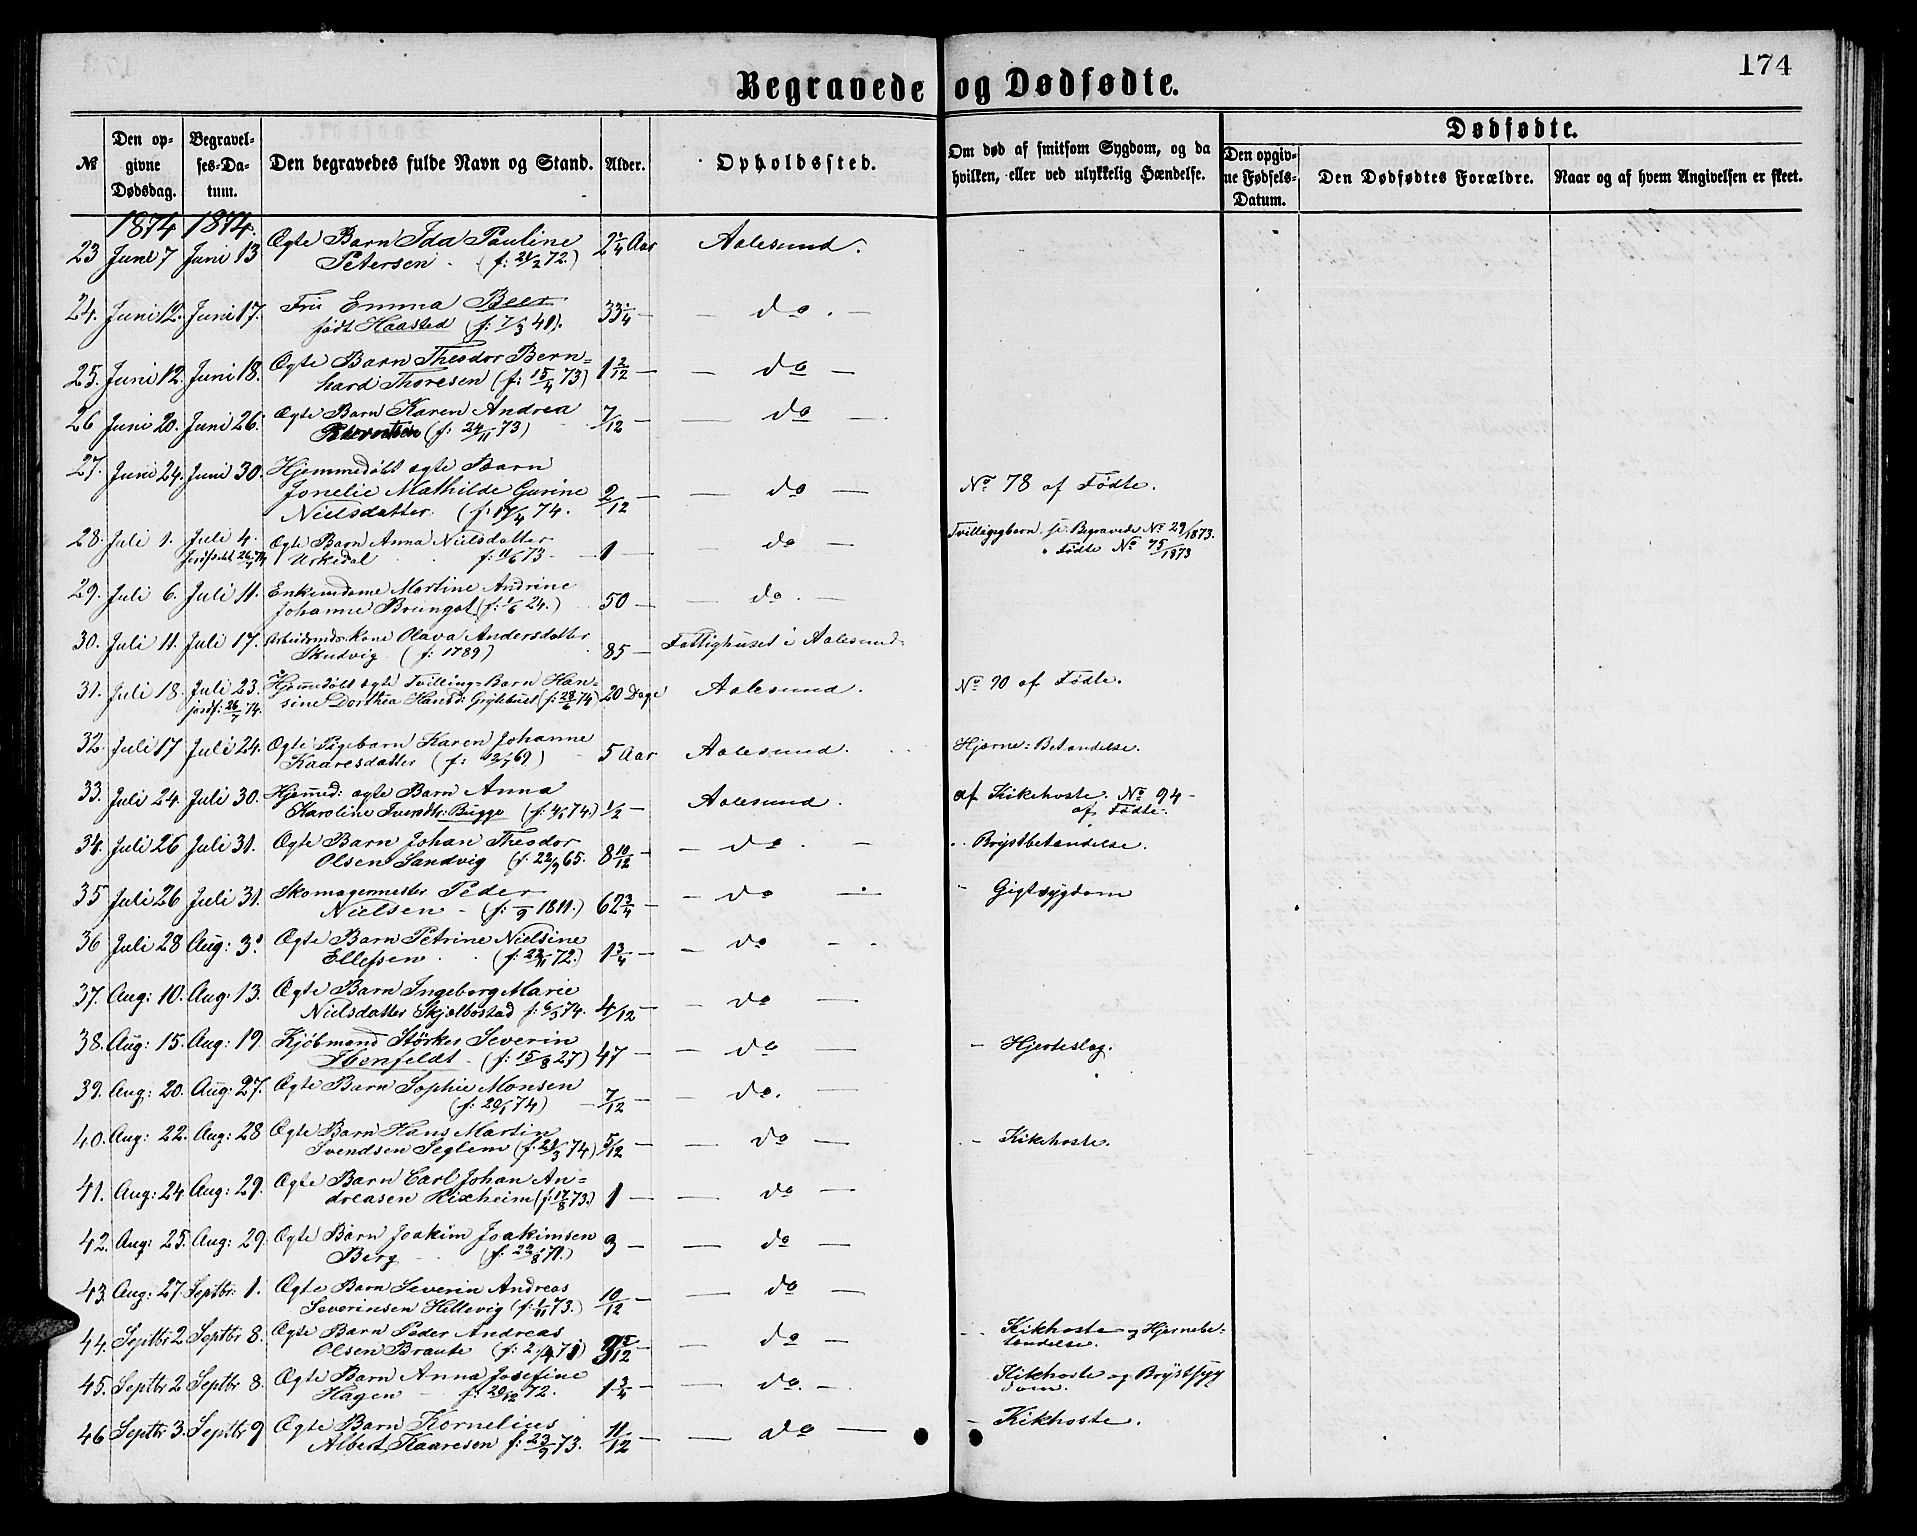 174
Begravede og Dødfødte.
№ Den opgivne Dødsdag. Begravelses-Datum. Den begravedes fulde Navn og Stand. Alder. Opholdssted. Om død af smitsom Sygdom, og da hvilken, eller ved ulykkelig Hændelse. Dødfødte. Den opgivne Fødsels-Datum. Den Dødfødtes Forældre. Naar og af hvem Angivelsen er skeet.
1874 1874.
23 Juni 7 Juni 13 Ægte Barn Ida Pauline 2 1/4 Aar Aalesund.
Petersen (f: 21/2 72.)
24. Juni 12. Juni 17. Fru Emma Beer 33 1/4 — — do. —
født Haasted (f: 7/3 41).
25. Juni 12. Juni 18. Ægte Barn Theodor Bern= 1 2/12 — — do —
hard Thoresen (f: 15/4 73)
26 Juni 20. Juni 26. Ægte Barn Karen Andrea 7/12 — — do —
(f: 24/11 73)
27. Juni 24. Juni 30. Hjemmedøbt ægte Barn
Jonelie Mathilde Gurine 2/12 — — do — No 78 af Fødte.
Nielsdatter (f: 17/4 74.
28. Juli 1. Juli 4. Ægte Barn Anna Nielsdatter — do — Tvillingbarn se Begravede No 29/1873.
Jordfæstet 26/7 74 Urkedal f: 11/6 73 — 1 — " Fødte No 75/1873
29. Juli 6. Juli 11. Enkemadame Martine Andrine 50 — — do. —
Johanne Brungot (f: 1/6 24.)
30. Juli 11. Juli 17. Arbeidsmds Kone Olava Andersdatter 85 — Fattighuset i Aalesund
Skudvig (f: 1789)
31. Juli 18. Juli 23. Hjemmedøbt ægte Tvilling=Barn Han= 20 Dage Aalesund. No 90 af Fødte.
jordf: 26/7 74. sine Dorthea Hansd: Grytebust (f: 28/6 74)
32. Juli 17 Juli 24. Ægte Pigebarn Karen Johanne 5 Aar Aalesund. Hjerne=Betændelse.
Kaaresdatter (f: 12/1 69)
33. Juli 24. Juli 30. Hjemmed: ægte Barn Anna 1/2 — Aalesund. af Kikehoste. No 94
Karoline Svendtr: Bugge (f: 4/1 74.) af Fødte.
34. Juli 26 Juli 31. Ægte Barn Johan Theodor 8 10/12 — — do. — Brystbetændelse.
Olsen Sandvig (f. 22/9 65.
35 Juli 26 Juli 31. Skomagermester Peder 62 3/4 — — do — Gigtsygdom
Nielsen (f: /9 1811.)
36 Juli 28 Aug: 3. Ægte Barn Petrine Nielsine 1 3/4 — — do —
Ellefsen (f: 22/11 72.)
37. Aug: 10. Aug: 13. Ægte Barn Ingeborg Marie 4/12 — — do —
Nielsdatter Skjelbostad f: 6/3 74.
38. Aug: 15. Aug: 19. Kjøbmand Størker Severin 47 — — do — Hjerteslag.
Ibenfeldt (f: 15/8 27)
39. Aug: 20. Aug: 27. Ægte Barn Sophie Monsen 7/12 — — do. —
(f: 20/1 74)
40. Aug: 22. Aug: 28 Ægte Barn Hans Martin 5/12 — — do — Kikehoste.
Svendsen Seglem (f: 21/3 74)
41. Aug: 24 Aug: 29. Ægte Barn Carl Johan An= 1 — — do —
dreasen Rixheim (f: 17/8 73.)
42. Aug: 25. Aug: 29. Ægte Barn Joakim Joakimsen 3 — — do —
Berg (f: 22/8 71.)
43. Aug: 27. Septbr: 1. Ægte Barn Severin Andreas 10/12 — — do —
Severinsen Hellevig (f: 1/11 73.)
44. Septbr 2 Septbr 8. Ægte Barn Peder Andreas 3 5/12 — — do — Kikhoste og Hjernebe=
Olsen Braute (f: 2/4 71) tændelse.
45. Septbr 2 Septbr 8. Ægte Barn Anna Josefine 1 3/4 — — do. — Kikhoste og Brystsyg
Hagen f: 20/12 72. dom.
46 Septbr 3. Septbr 9 Ægte Barn Kornelius 11/12 — — do — Kikhoste.
Albert Kaaresen f: 23/9 73.